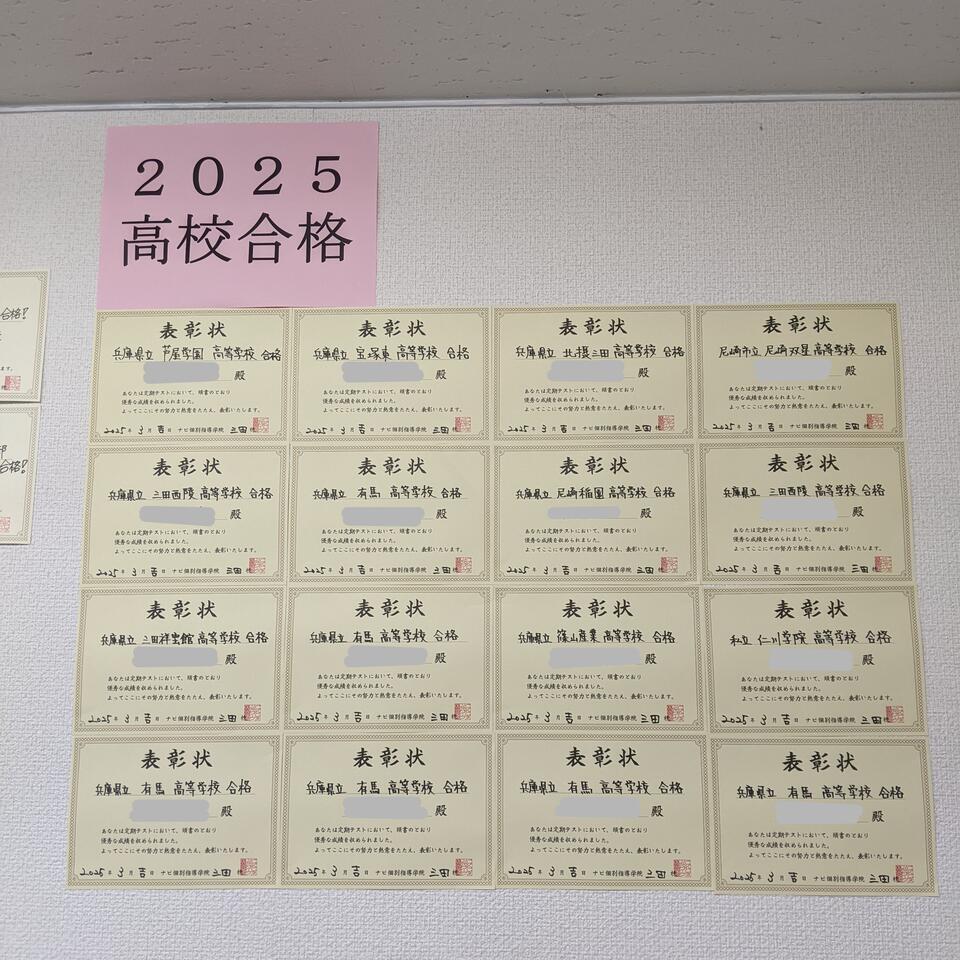 2025
高校合格
合格!
ます。
合格!
表彰状
兵庫県立 芦屋学園 高等学校 合格
殿
あなたは定期テストにおいて、頭書のとおり
優秀な成績を収められました。
よってここにその努力と熱意をたたえ、表彰いたします。
2025年 3月 吉日 ナビ個別指導学院 三田校
表彰状
兵庫県立 宝塚東 高等学校 合格
殿
あなたは定期テストにおいて、頭書のとおり
優秀な成績を収められました。
よってここにその努力と熱意をたたえ、表彰いたします。
2025年 3月 吉日 ナビ個別指導学院 三田校
表彰状
兵庫県立 北摂三田 高等学校 合格
殿
あなたは定期テストにおいて、頭書のとおり
優秀な成績を収められました。
よってここにその努力と熱意をたたえ、表彰いたします。
2025年 3月 吉日 ナビ個別指導学院 三田校
表彰状
尼崎市立 尼崎双星 高等学校 合格
殿
あなたは定期テストにおいて、頭書のとおり
優秀な成績を収められました。
よってここにその努力と熱意をたたえ、表彰いたします。
2025年 3月 吉日 ナビ個別指導学院 三田校
表彰状
兵庫県立 三田西陵 高等学校 合格
殿
あなたは定期テストにおいて、頭書のとおり
優秀な成績を収められました。
よってここにその努力と熱意をたたえ、表彰いたします。
2025年 3月 吉日 ナビ個別指導学院 三田校
表彰状
兵庫県立 有馬 高等学校 合格
殿
あなたは定期テストにおいて、頭書のとおり
優秀な成績を収められました。
よってここにその努力と熱意をたたえ、表彰いたします。
2025年 3月 吉日 ナビ個別指導学院 三田校
表彰状
兵庫県立 尼崎稲園 高等学校 合格
殿
あなたは定期テストにおいて、頭書のとおり
優秀な成績を収められました。
よってここにその努力と熱意をたたえ、表彰いたします。
2025年 3月 吉日 ナビ個別指導学院 三田校
表彰状
兵庫県立 三田西陵 高等学校 合格
殿
あなたは定期テストにおいて、頭書のとおり
優秀な成績を収められました。
よってここにその努力と熱意をたたえ、表彰いたします。
2025年 3月 吉日 ナビ個別指導学院 三田校
表彰状
兵庫県立 三田祥雲館 高等学校 合格
殿
あなたは定期テストにおいて、頭書のとおり
優秀な成績を収められました。
よってここにその努力と熱意をたたえ、表彰いたします。
2025年 3月 吉日 ナビ個別指導学院 三田校
表彰状
兵庫県立 有馬 高等学校 合格
殿
あなたは定期テストにおいて、頭書のとおり
優秀な成績を収められました。
よってここにその努力と熱意をたたえ、表彰いたします。
2025年 3月 吉日 ナビ個別指導学院 三田校
表彰状
兵庫県立 篠山産業 高等学校 合格
殿
あなたは定期テストにおいて、頭書のとおり
優秀な成績を収められました。
よってここにその努力と熱意をたたえ、表彰いたします。
2025年 3月 吉日 ナビ個別指導学院 三田校
表彰状
私立 仁川学院 高等学校 合格
殿
あなたは定期テストにおいて、頭書のとおり
優秀な成績を収められました。
よってここにその努力と熱意をたたえ、表彰いたします。
2025年 3月 吉日 ナビ個別指導学院 三田校
表彰状
兵庫県立 有馬 高等学校 合格
殿
あなたは定期テストにおいて、頭書のとおり
優秀な成績を収められました。
よってここにその努力と熱意をたたえ、表彰いたします。
2025年 3月 吉日 ナビ個別指導学院 三田校
表彰状
兵庫県立 有馬 高等学校 合格
殿
あなたは定期テストにおいて、頭書のとおり
優秀な成績を収められました。
よってここにその努力と熱意をたたえ、表彰いたします。
2025年 3月 吉日 ナビ個別指導学院 三田校
表彰状
兵庫県立 有馬 高等学校 合格
殿
あなたは定期テストにおいて、頭書のとおり
優秀な成績を収められました。
よってここにその努力と熱意をたたえ、表彰いたします。
2025年 3月 吉日 ナビ個別指導学院 三田校
表彰状
兵庫県立 有馬 高等学校 合格
殿
あなたは定期テストにおいて、頭書のとおり
優秀な成績を収められました。
よってここにその努力と熱意をたたえ、表彰いたします。
2025年 3月 吉日 ナビ個別指導学院 三田校